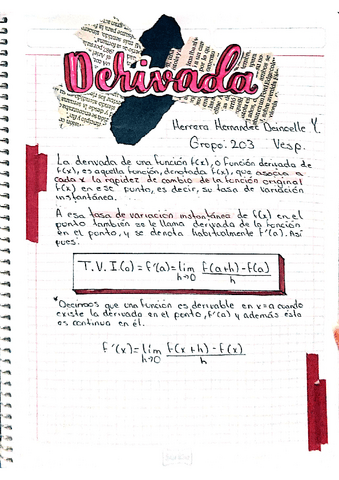 Derivada
Herrera Hernandez Deincelle Y.
Grupo: 203 Vesp.
La derivada de una función f(x), o función derivada de
f(x), es aquella función, denotada f'(x), que asocia a
cada x la rapidez de cambio de la función original
f(x) en ese punto, es decir, su tasa de variación
instantánea.
A esa tasa de variación instantánea de f(x) en el
punto también se le llama derivada de la función
en el punto, y se denota habitualmente f'(a). Así
pues:
T.V.I.(a) = f'(a) = lím f(a+h)-f(a)
h→0 h
*Decimos que una función es derivable en x=a cuando
existe la derivada en el punto, f'(a) y además ésta
es continua en él.
f'(x) = lím f(x+h)-f(x)
h→0 h